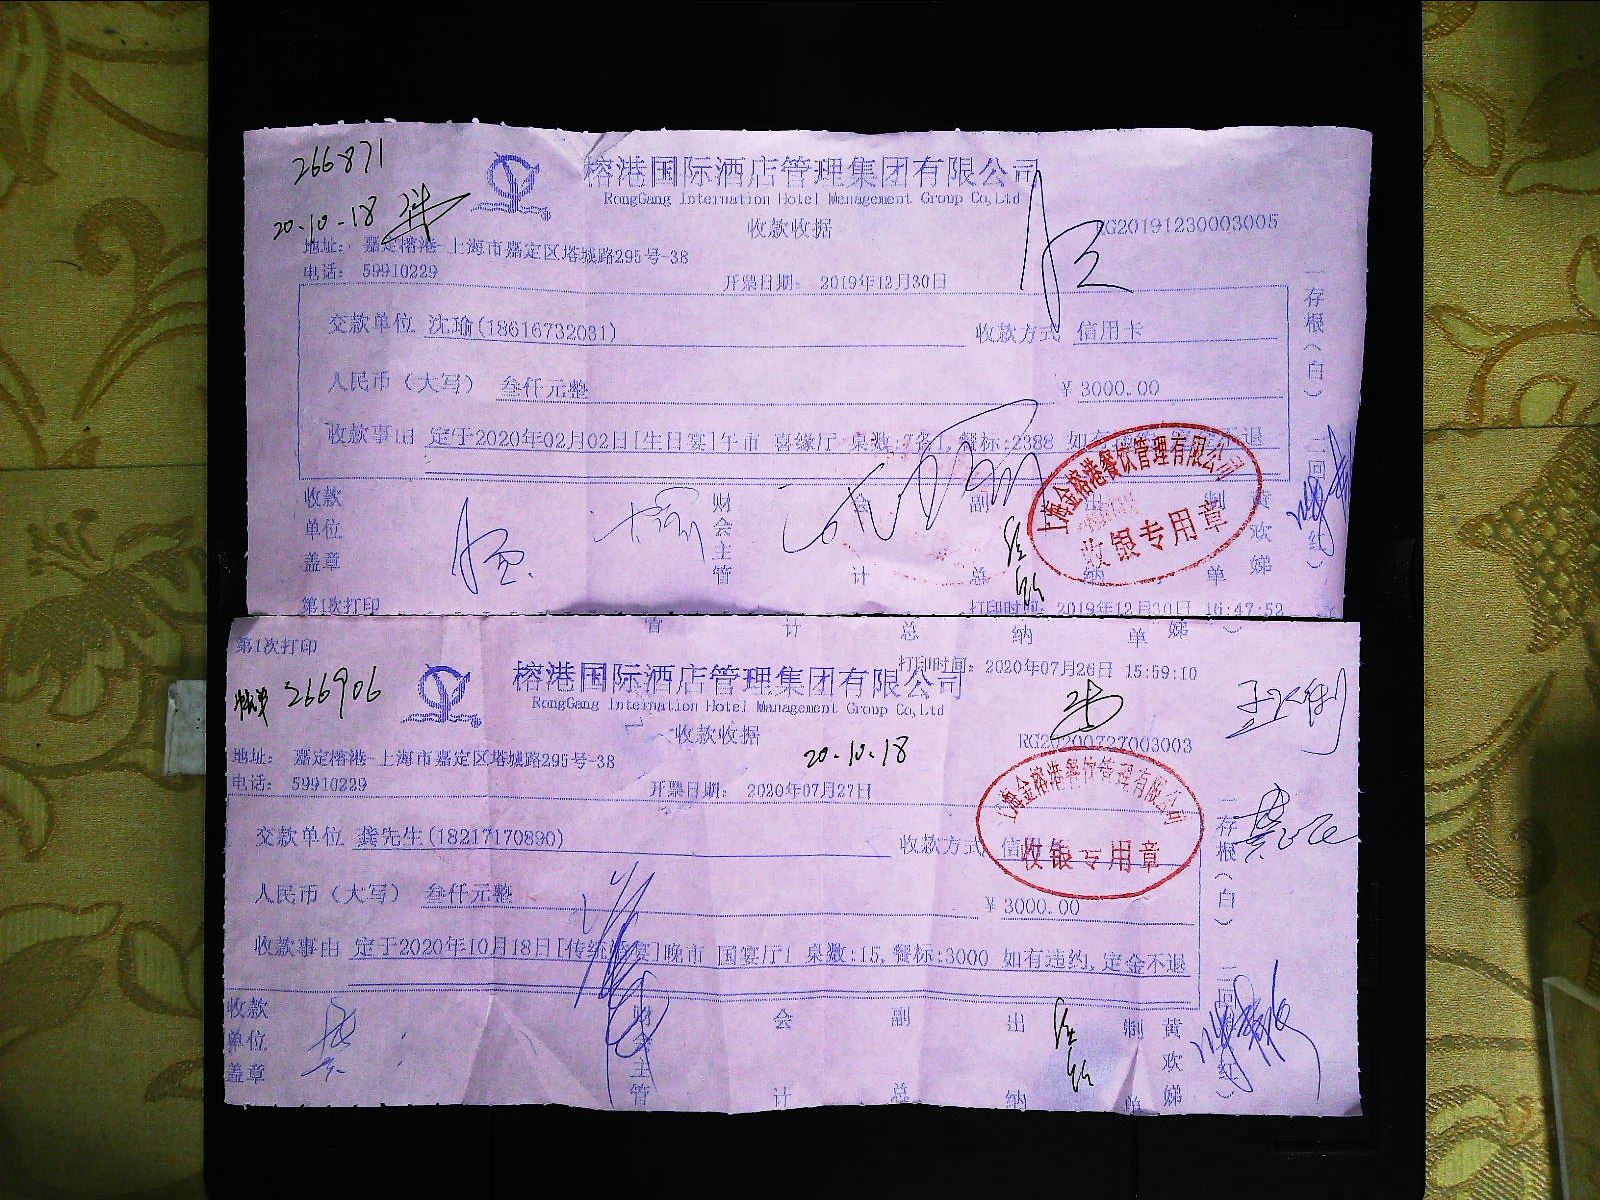 266871
20.10-18
榕港国际酒店管理集团有限公司
RongGang Internation Hotel Management Group Co,Ltd
收款收据
RG20191230003005
地址： 嘉定榕港-上海市嘉定区塔城路295号-38
电话： 59910229
开票日期： 2019年12月30日
交款单位 沈瑜(18616732031) 收款方式 信用卡
人民币（大写） 叁仟元整 ￥3000.00
收款事由 定于2020年02月02日[生日宴]午市 喜缘厅 桌数:7备1,餐标:2388 如有 不退
上海金榕港餐饮管理有限公司
收银专用章
收款单位盖章 财会主管 会计 副总 出纳 制单 黄欢娣
一存根（白） 二回 红）
第1次打印
打印时间： 2019年12月30日 16:47:52
管 计 总 纳 单 娣 ）
第1次打印
打印时间： 2020年07月26日 15:59:10
266906
榕港国际酒店管理集团有限公司
RongGang Internation Hotel Management Group Co,Ltd
收款收据
20.10.18
RG20200727003003
地址： 嘉定榕港-上海市嘉定区塔城路295号-38
电话： 59910229
开票日期： 2020年07月27日
交款单位 龚先生(18217170890) 收款方式 信
上海金榕港餐饮管理有限公司
收银专用章
人民币（大写） 叁仟元整 ￥3000.00
收款事由 定于2020年10月18日[传统婚宴]晚市 国宴厅1 桌数:15,餐标:3000 如有违约,定金不退
收款单位盖章 财会主管 会计 副总 出纳 制单 黄欢娣
一存根（白） 二回 红）